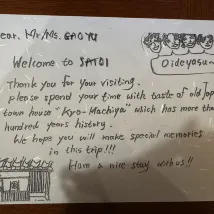 ear. Mr/Ms. GAO YU
Oideyasu
Welcome to SATOI
Thank you for your visiting.
please spend your time with taste of old Jap
town house "Kyo-Machiya" which has more tha
hundred years history.
We hope you will make special memories
in this trip!!!
Have a nice stay with us!!